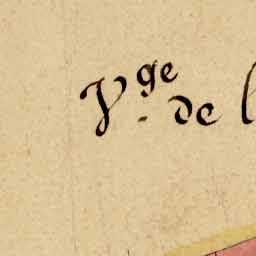 Vge. de l